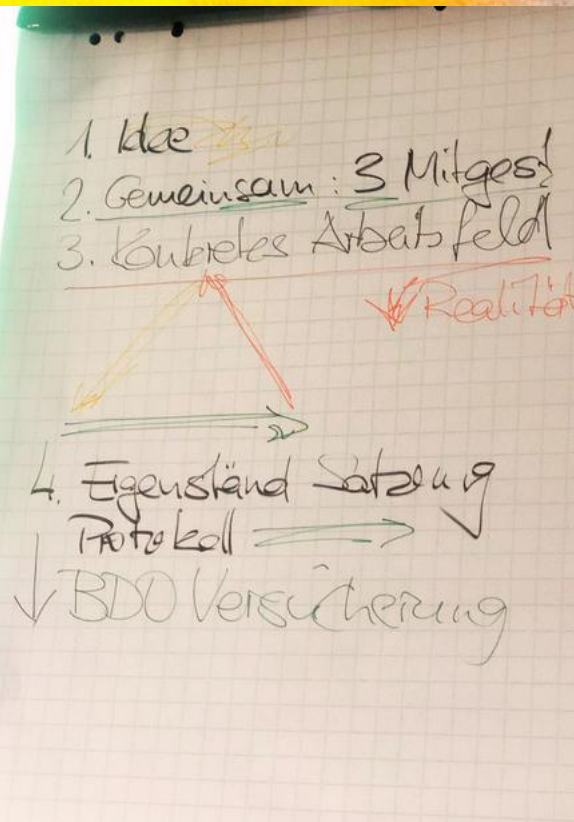 1. Idee
2. Gemeinsam : 3 Mitgest
3. Konkretes Arbeitsfeld
Realität
4. Eigenständ Satzung
Protokoll
BDO Versicherung